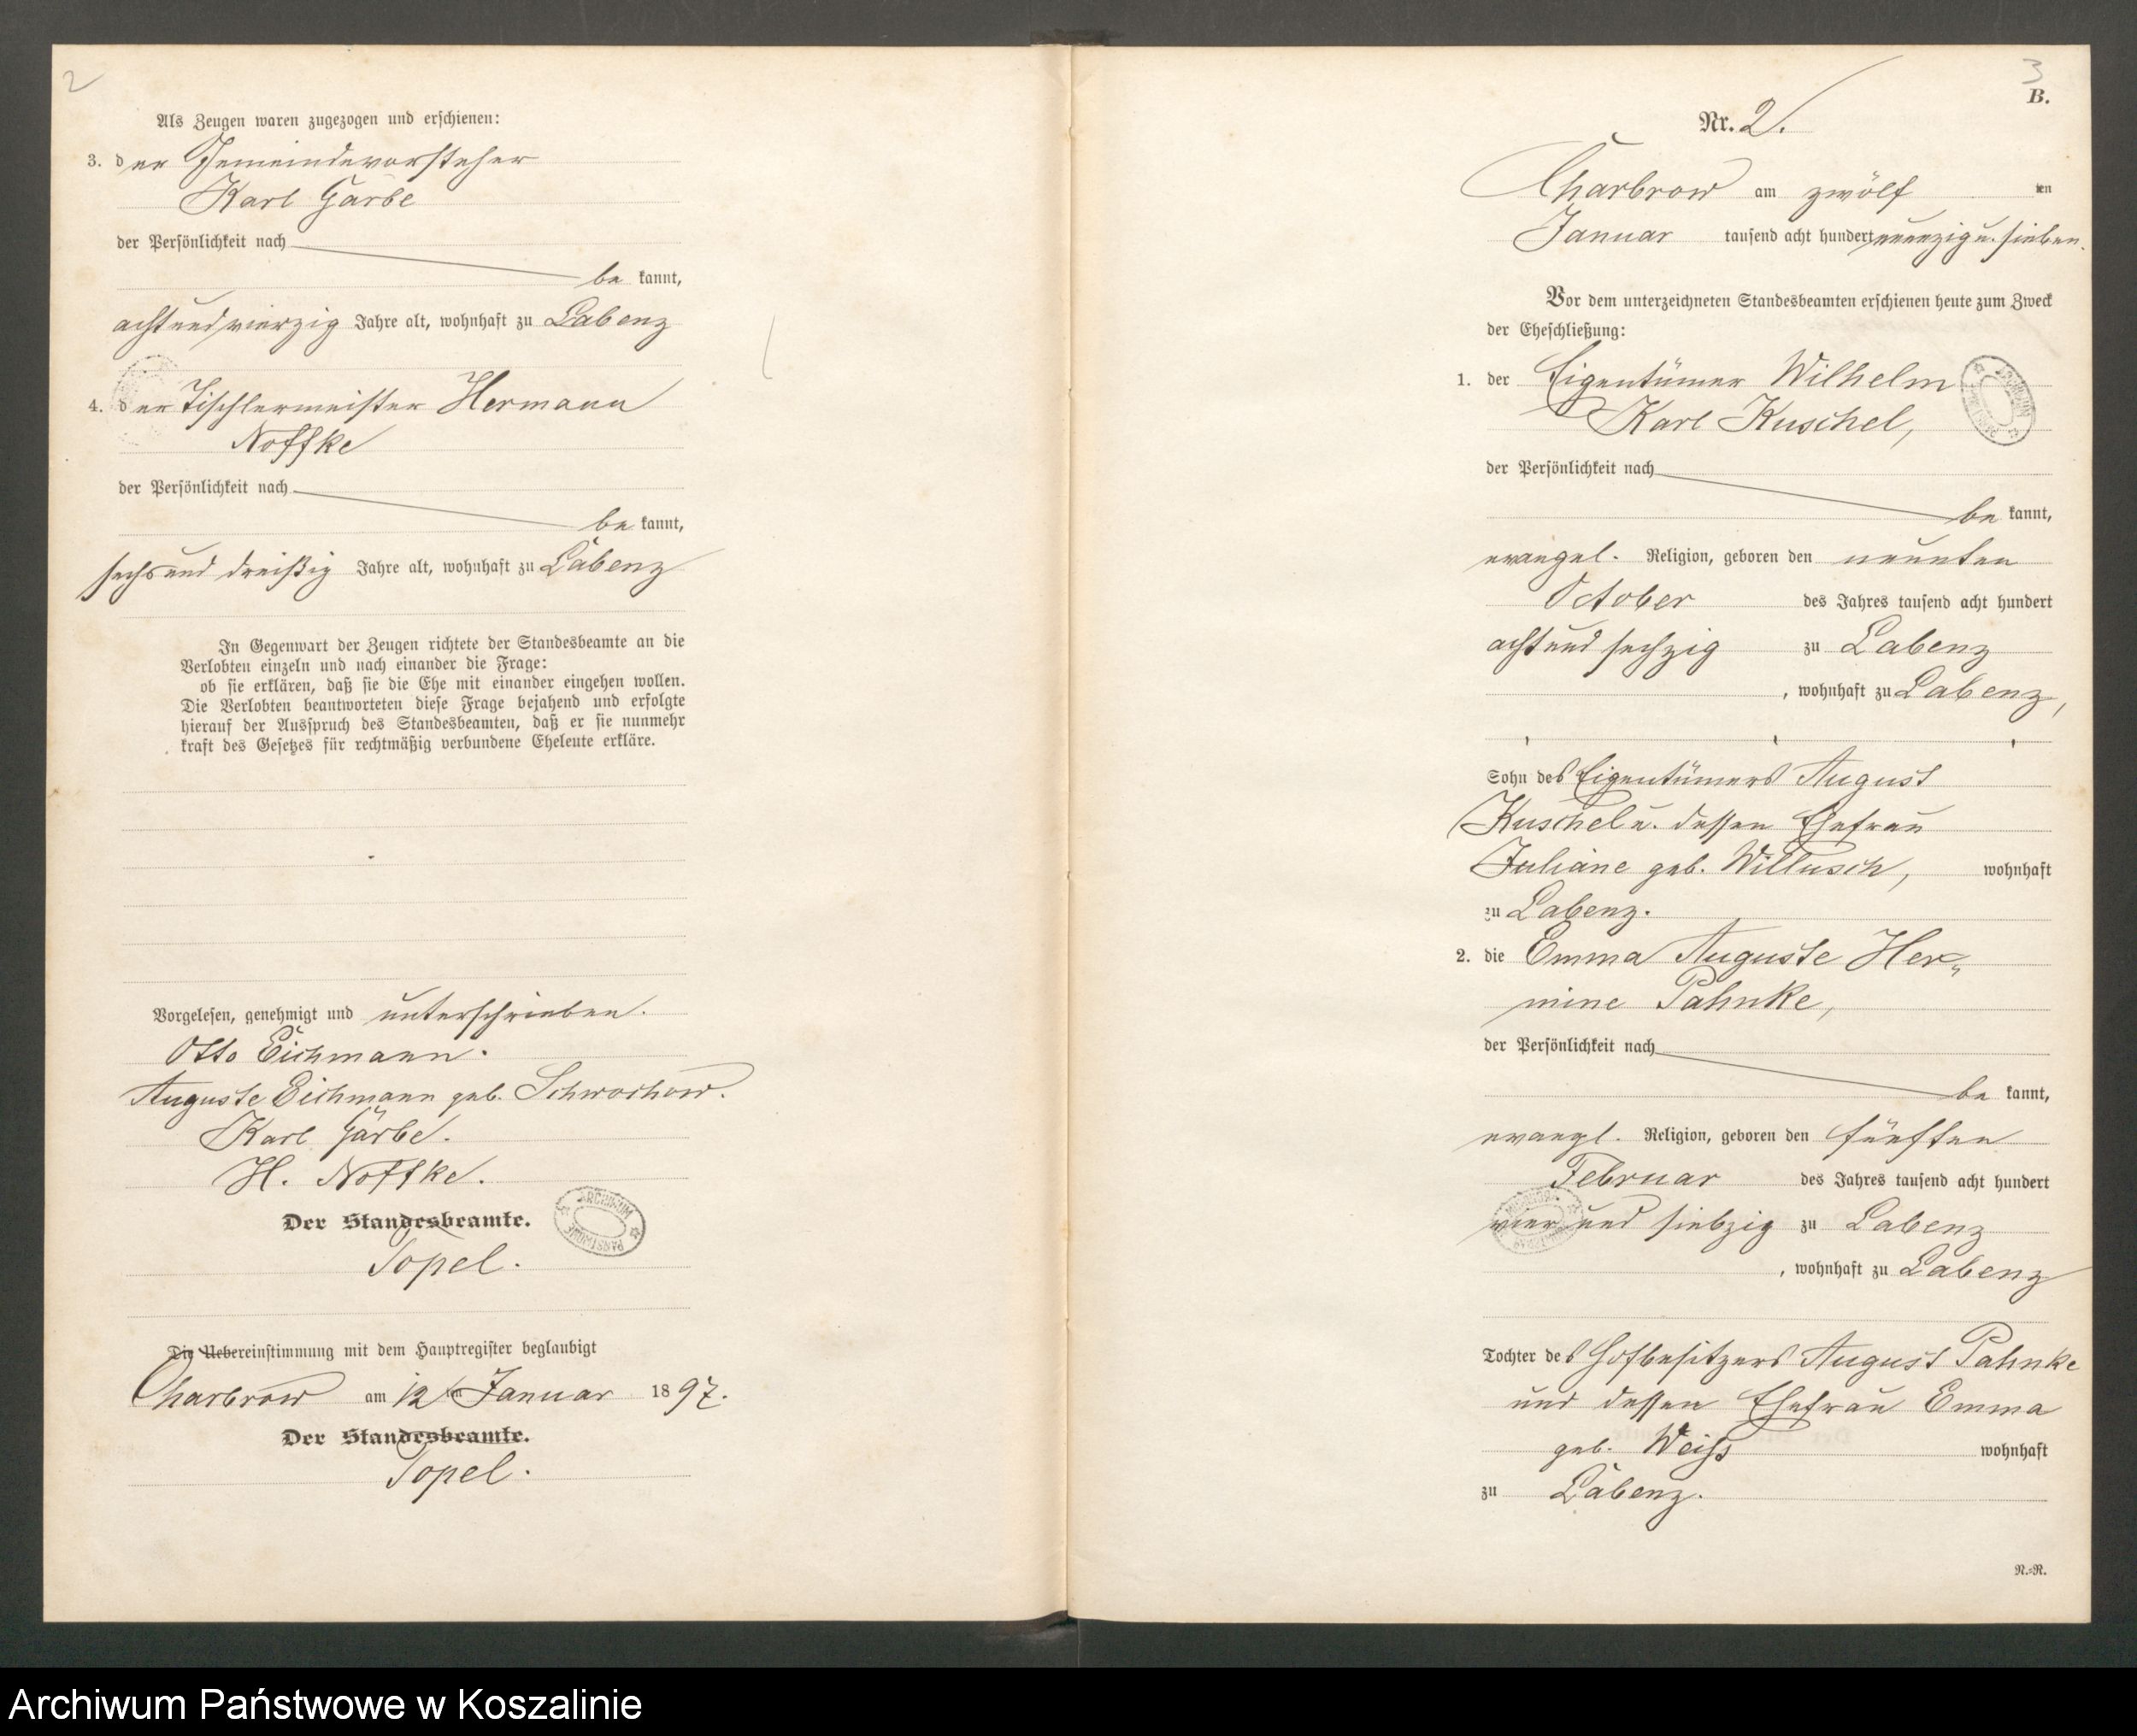 2
Als Zeugen waren zugezogen und erschienen:
3. der Gemeindevorsteher
Karl Garbe
der Persönlichkeit nach
be kannt,
achtundvierzig Jahre alt, wohnhaft zu Labenz
4. der Tischlermeister Hermann
Noffke
der Persönlichkeit nach
be kannt,
sechsund dreißig Jahre alt, wohnhaft zu Labenz
In Gegenwart der Zeugen richtete der Standesbeamte an die
Verlobten einzeln und nach einander die Frage:
ob sie erklären, daß sie die Ehe mit einander eingehen wollen.
Die Verlobten beantworteten diese Frage bejahend und erfolgte
hierauf der Ausspruch des Standesbeamten, daß er sie nunmehr
kraft des Gesetzes für rechtmäßig verbundene Eheleute erkläre.
Vorgelesen, genehmigt und unterschrieben.
Otto Eichmann.
Auguste Eichmann geb. Schwochow.
Karl Garbe.
H. Noffke.
Der Standesbeamte.
ARCHIWUM PAŃSTWOWE
Topel.
Die Uebereinstimmung mit dem Hauptregister beglaubigt
Charbrow am 12 ten Januar 1897.
Der Standesbeamte.
Topel.
3
B.
Nr. 2.
Charbrow am zwölf ten
Januar tausend acht hundert neunzig u. sieben.
Vor dem unterzeichneten Standesbeamten erschienen heute zum Zweck
der Eheschließung:
1. der Eigentümer Wilhelm
Karl Kuschel,
der Persönlichkeit nach
be kannt,
evangel. Religion, geboren den neunten
October des Jahres tausend acht hundert
achtund sechzig zu Labenz
, wohnhaft zu Labenz,
Sohn des Eigentümers August
Kuschel u. dessen Ehefrau
Juliane geb. Willusch, wohnhaft
zu Labenz.
2. die Emma Auguste Her-
mine Pahnke,
der Persönlichkeit nach
be kannt,
evangl. Religion, geboren den fünften
Februar des Jahres tausend acht hundert
vier und siebzig zu Labenz
, wohnhaft zu Labenz
Tochter des Hofbesitzers August Pahnke
und dessen Ehefrau Emma
geb. Weiß wohnhaft
zu Labenz.
N.-R.
Archiwum Państwowe w Koszalinie